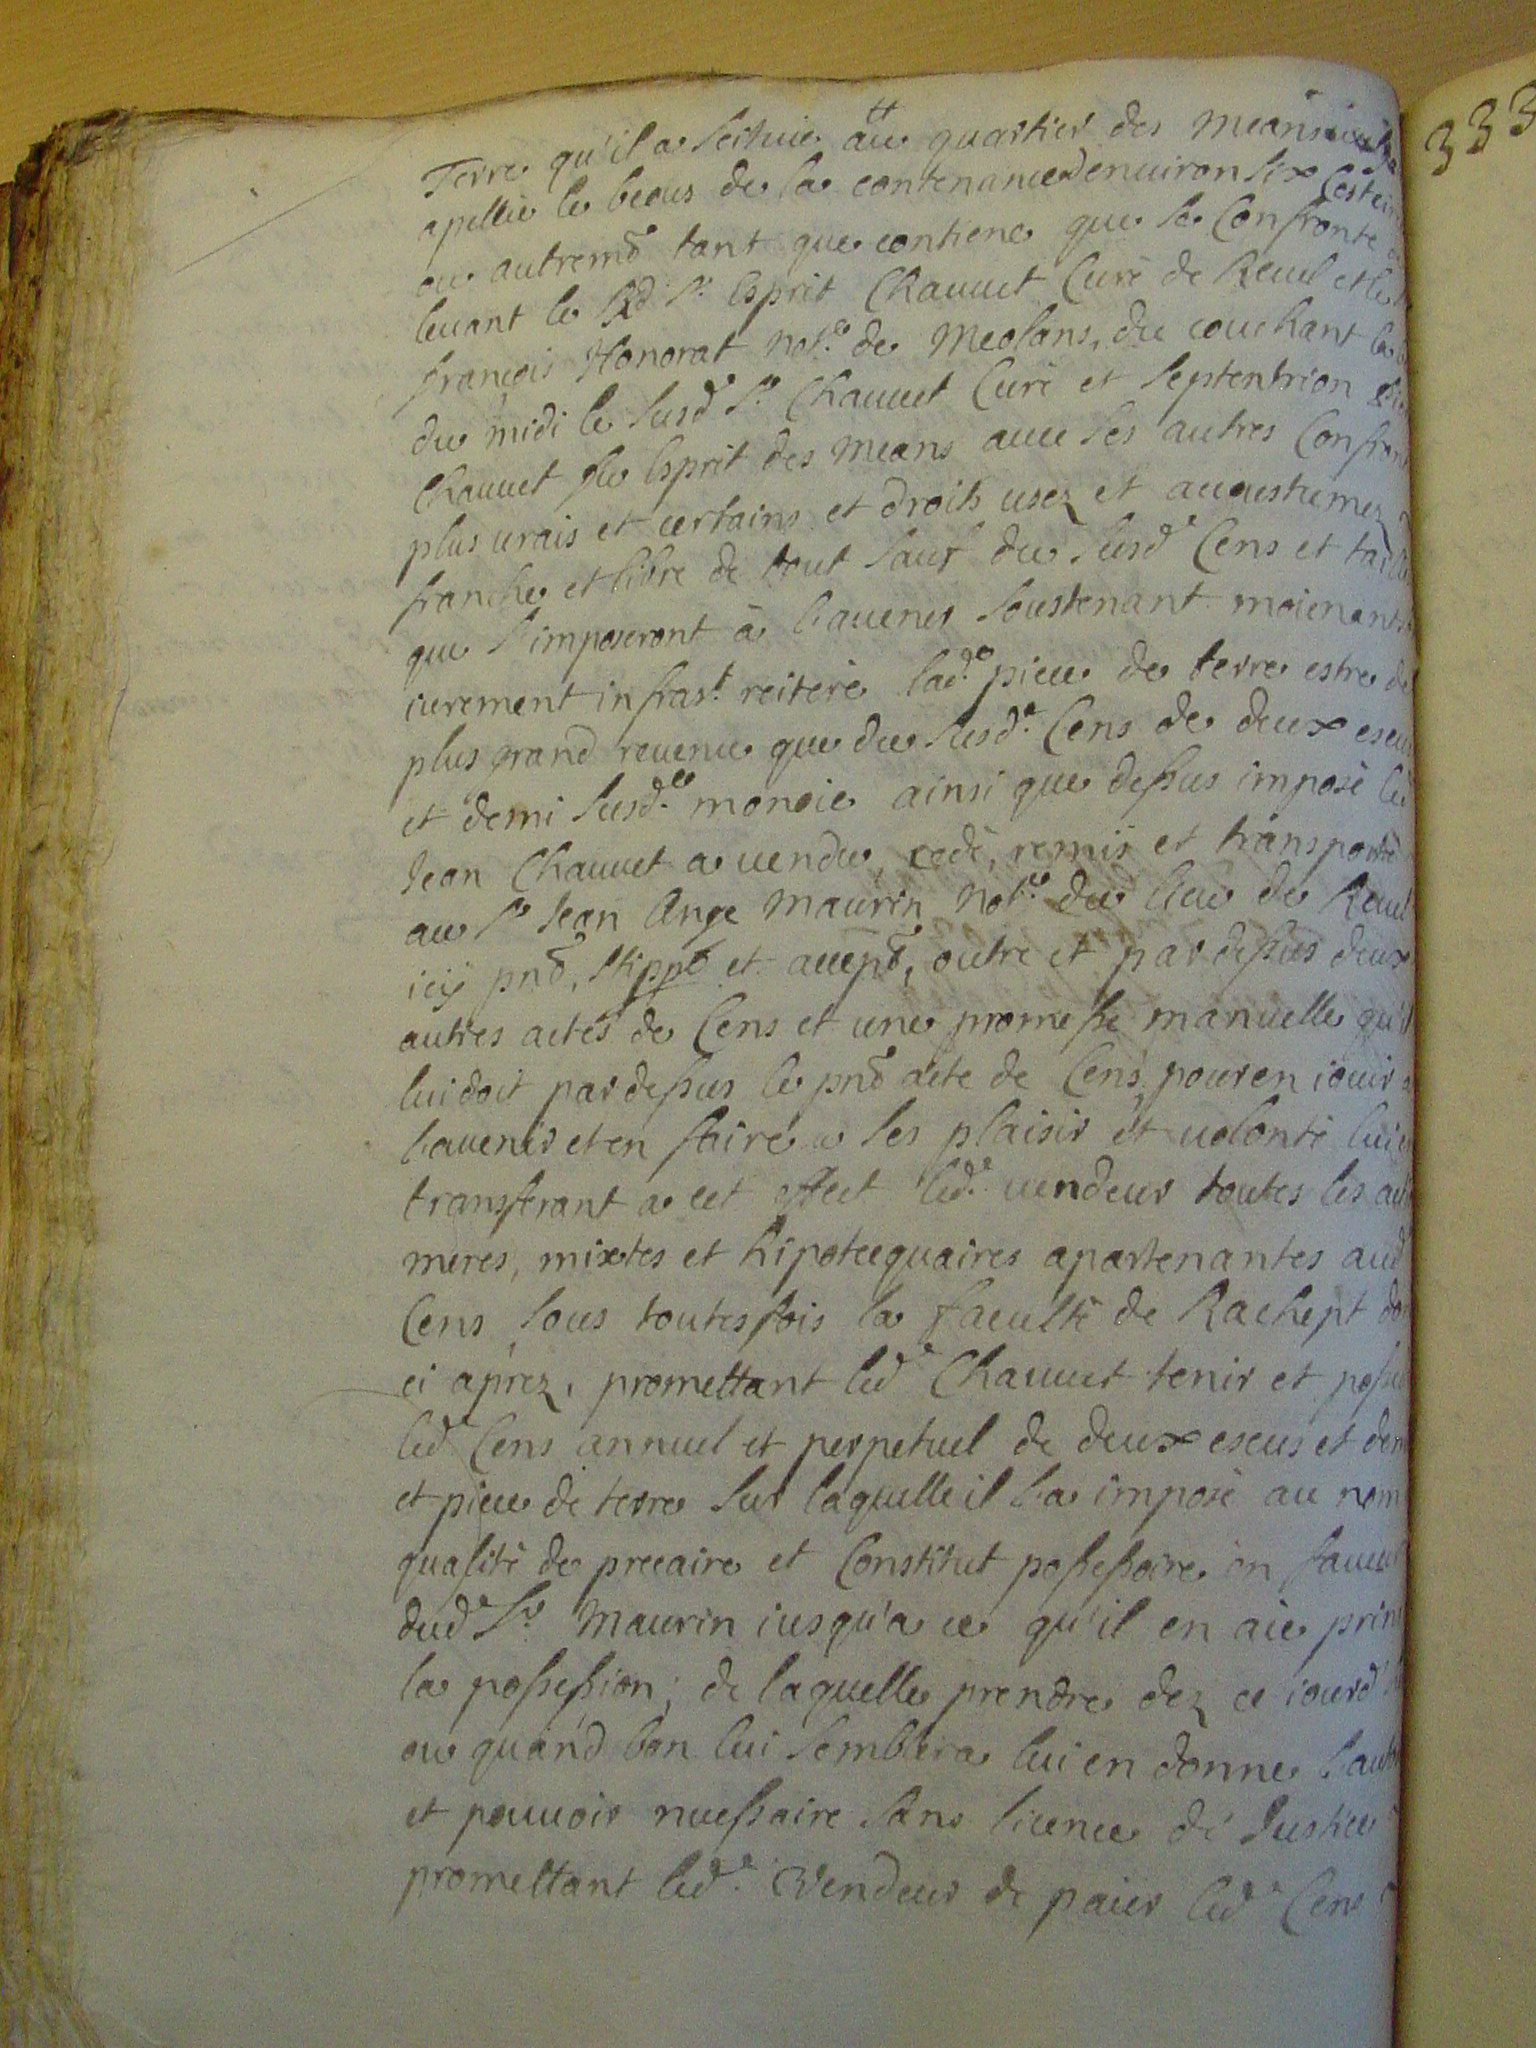 Terre qu'il a scituie au quartier des means
apellie le beous de la contenance denuiron six
ou autremẽ tant que contiene que se Confronte
leuant le Rd. Sr. Esprit Chauuet Curè de Reuel et le
françois Honorat Note. de Meolans, du couchant le
du midi le susd. Sr. Chauuet Curè et septentrion
Chauuet fe Esprit des means auec ses autres Confron
plus urais et certains et droits usez et acoustumez
franche et libre de tout sauf du susd. Cens et taille
que s'imposeront à l'auenir soustenant moienant
iurement infrast. reiterè lad.e piece de terre estre de
plus grand reuenu que du susd.e Cens de deux escus
et demi susd.e monoie ainsi que dessus imposè led
Jean Chauuet a uendu, cedè, remis et transportè
au Sr Jean Ange Maurin Note. du lieu de Reuel
icij pnẽ, stippt et acceptẽ, outre et par dessus deux
autres actes de Cens et une promesse manuelle qu'il
lui doit par dessus le pnẽ acte de Cens, pour en iouir a
l'auenir et en faire a ses plaisir et uolontè lui
transferant a cet effect led.e uendeur toutes les
meres, mixtes et hipotecquaires apartenantes aud
Cens sous toutesfois la facultè de Rachept
ci aprez, promettant led.e Chauuet tenir et
led.e Cens annuel et perpetuel de deux escus et dem
et piece de terre sur laquelle il l'a imposè au nom
qualitè de precaire et Constitut possessoire en faueur
dud.e Sr. Maurin iusqu'a ce qu'il en aie
la possession; de laquelle prendre dez ce iourd'
ou quand bon lui semblera lui en donne
et pouuoir necessaire sans licence de Justice
promettant led.e Vendeur de paier led.e Cens
333